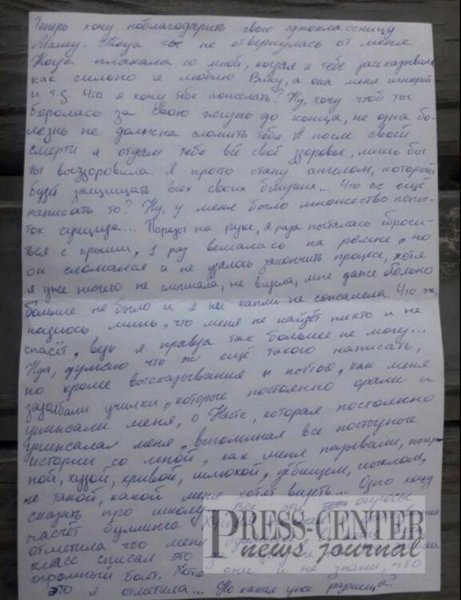 Теперь хочу поблагодарить свою однокласницу
Машу. Тогда ты не отвернулась от меня.
Тогда плакала со мной, когда я тебе рассказывала
как сильно я люблю Рину, а она меня
и т.д. Что я хочу тебе пожелать? Ну, хочу чтоб ты
боролась за свою жизнь до конца, не одна бо-
лезнь не должна сломить тебя. И после своей
смерти я отдам тебе всё своё здоровье, лишь бы
ты выздоровила. Я просто стану ангелом, который
будет защищать всех своих близких... Что же ещё
написать то? Ну, у меня было множество попы-
ток суицида... Порезы на руке, я раза пыталась сброси-
ться с крыши, 1 раз вешалась на ремне, но
он сломался и не удалось закончить процесс, хотя
я уже ничего не слышала, не видела, мне даже больно
больше не было и я ни капли не сожалела. Что ж,
надеюсь лишь, что меня не найдёт никто и не
спасёт, ведь я правда так больше не могу...
Нда, думаю что же ещё такого написать,
но кроме высказывания и нытья, как меня
задолбали училки, которые постоянно орали и
унижали меня, о Нате, которая постоянно
унижала меня, вспоминая все постыдные
истории со мной, как меня называли
ной, худой, кривой, шлюхой, уёбищем,
не такой, какой меня хотят видеть... Одно хочу
сказать про школу опросы
насчёт буллинга
отметила что меня
класс списал это
огромный болт. Хотя они и не знали, что
это я отметила... Но какая уже разница?
PRESS-CENTER
news journal